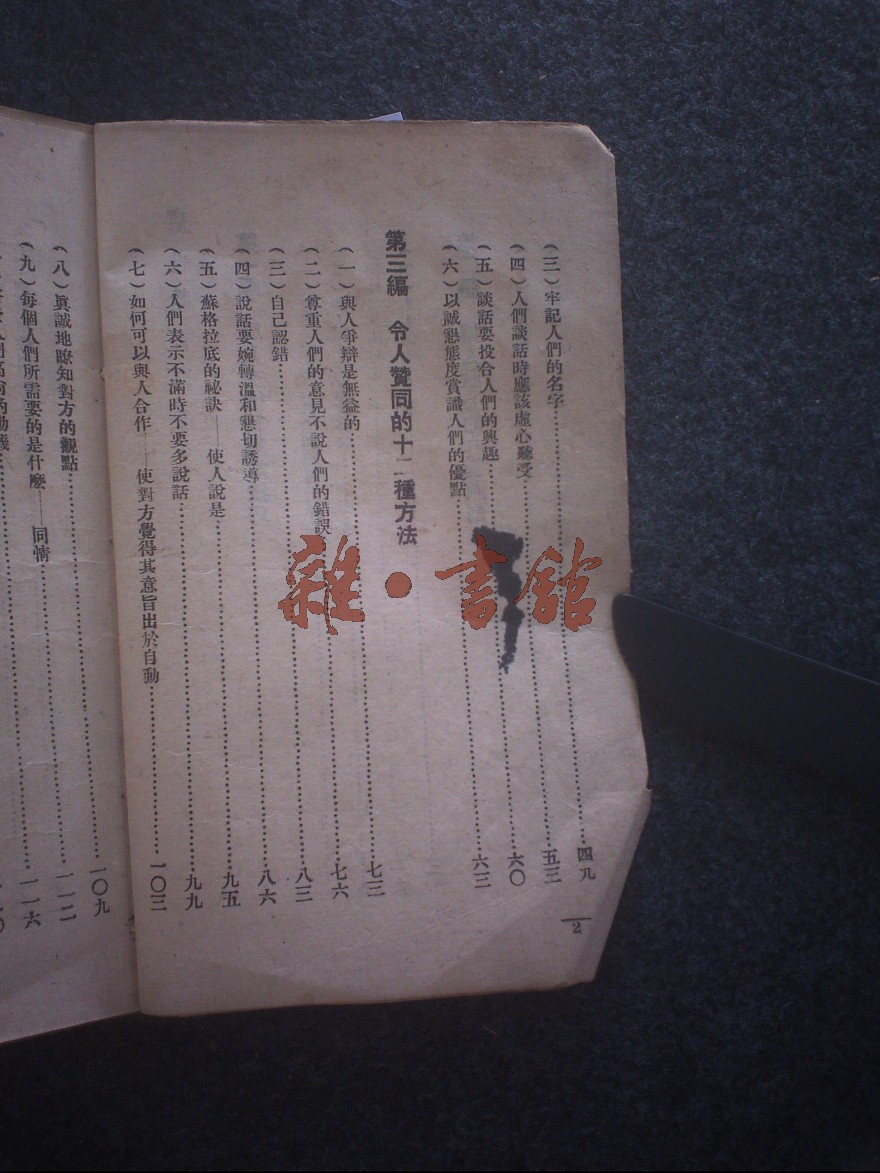 (三)牢記人們的名字……四九
(四)人們談話時應該虛心聽受……五三
(五)談話要投合人們的興趣……六〇
(六)以誠懇態度賞識人們的優點……六三
第三編　令人贊同的十二種方法
(一)與人爭辯是無益的……七三
(二)尊重人們的意見不說人們的錯誤……七六
(三)自己認錯……八三
(四)說話要婉轉溫和懇切誘導……八六
(五)蘇格拉底的祕訣——使人說是……九五
(六)人們表示不滿時不要多說話……九九
(七)如何可以與人合作——使對方覺得其意旨出於自動……一〇三
(八)眞誠地瞭知對方的觀點……一〇九
(九)每個人們所需要的是什麼——同情……一一二
一一六
2
雜·書館